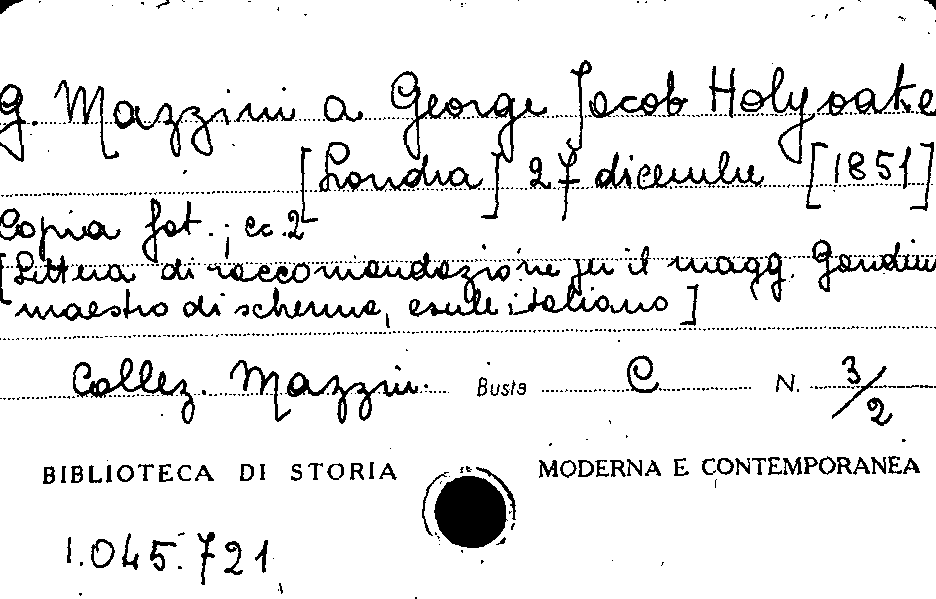 G. Mazzini a George Jacob Holyoake
[Londra] 27 dicembre [1851]
Copia fot.; cc. 2
[Lettera di raccomandazione per il magg.
maestro di scherma, esule italiano]
Collez. Mazzini. Busta C N. 3/2
BIBLIOTECA DI STORIA MODERNA E CONTEMPORANEA
1.045.721